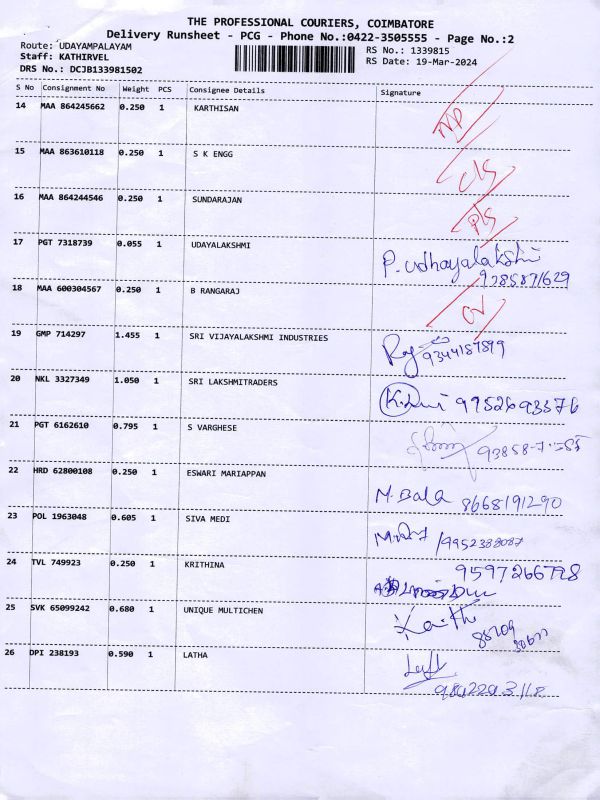 THE PROFESSIONAL COURIERS, COIMBATORE
Delivery Runsheet - PCG - Phone No.:0422-3505555 - Page No.:2
Route: UDAYAMPALAYAM
RS No.: 1339815
Staff: KATHIRVEL
RS Date: 19-Mar-2024
DRS No.: DCJB133981502
S No Consignment No Weight PCS Consignee Details Signature
14 MAA 864245662 0.250 1 KARTHISAN
15 MAA 863610118 0.250 1 S K ENGG
16 MAA 864244546 0.250 1 SUNDARAJAN
17 PGT 7318739 0.055 1 UDAYALAKSHMI P. Udhayalakshmi
18 MAA 600304567 0.250 1 B RANGARAJ
19 GMP 714297 1.455 1 SRI VIJAYALAKSHMI INDUSTRIES
20 NKL 3327349 1.050 1 SRI LAKSHMITRADERS 9952693376
21 PGT 6162610 0.795 1 S VARGHESE
22 HRD 62800108 0.250 1 ESWARI MARIAPPAN M. Bala 8668191290
23 POL 1963048 0.605 1 SIVA MEDI
24 TVL 749923 0.250 1 KRITHINA
25 SVK 65099242 0.680 1 UNIQUE MULTICHEN
26 DPI 238193 0.590 1 LATHA